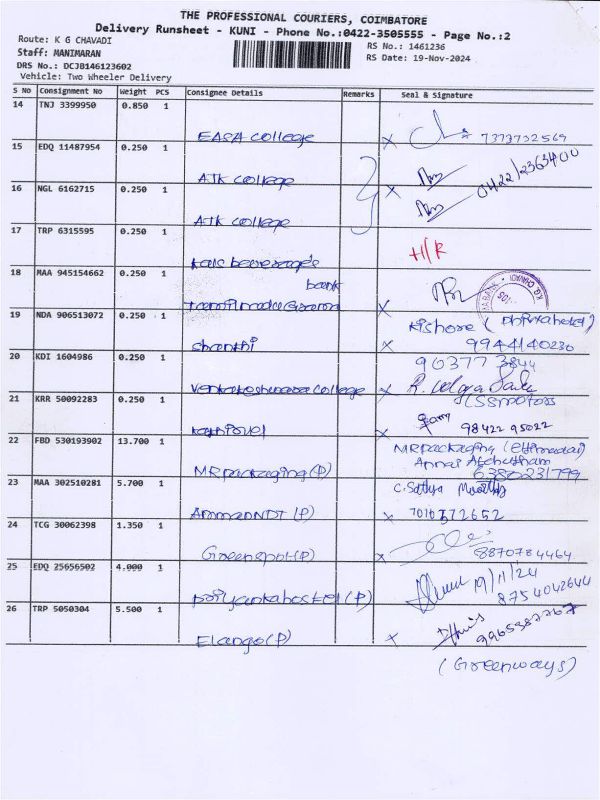 THE PROFESSIONAL COURIERS, COIMBATORE
Delivery Runsheet - KUNI - Phone No.:0422-3505555 - Page No.:2
Route: K G CHAVADI
RS No.: 1461236
Staff: MANIMARAN
RS Date: 19-Nov-2024
DRS No.: DCJB146123602
Vehicle: Two Wheeler Delivery
S No Consignment No Weight PCS Consignee Details Remarks Seal & Signature
14 TNJ 3399950 0.850 1
EASA College x 7373732569
15 EDQ 11487954 0.250 1
AJK College 0422/2363400
16 NGL 6162715 0.250 1 x
AJK College
17 TRP 6315595 0.250 1
beverages H/R
18 MAA 945154662 0.250 1 bank
Tamilnadu x
19 NDA 906513072 0.250 1 Kishore
Shanthi x 9944140230
20 KDI 1604986 0.250 1 903773844
Venkateshwara College x
21 KRR 50092283 0.250 1
x 98422 95022
22 FBD 530193902 13.700 1 MR packaging (Ettimadai)
MR packaging (P) 6380231799
23 MAA 302510281 5.700 1 C. Sathya
Amman NDT (P) x 7010572652
24 TCG 30062398 1.350 1
Greenspot (P) x 8870784464
25 EDQ 25656502 4.000 1 19/11/24
Priyanka hostel (P) 8754042644
26 TRP 5050304 5.500 1
Elango (P) x 9965387767
(Greenways)